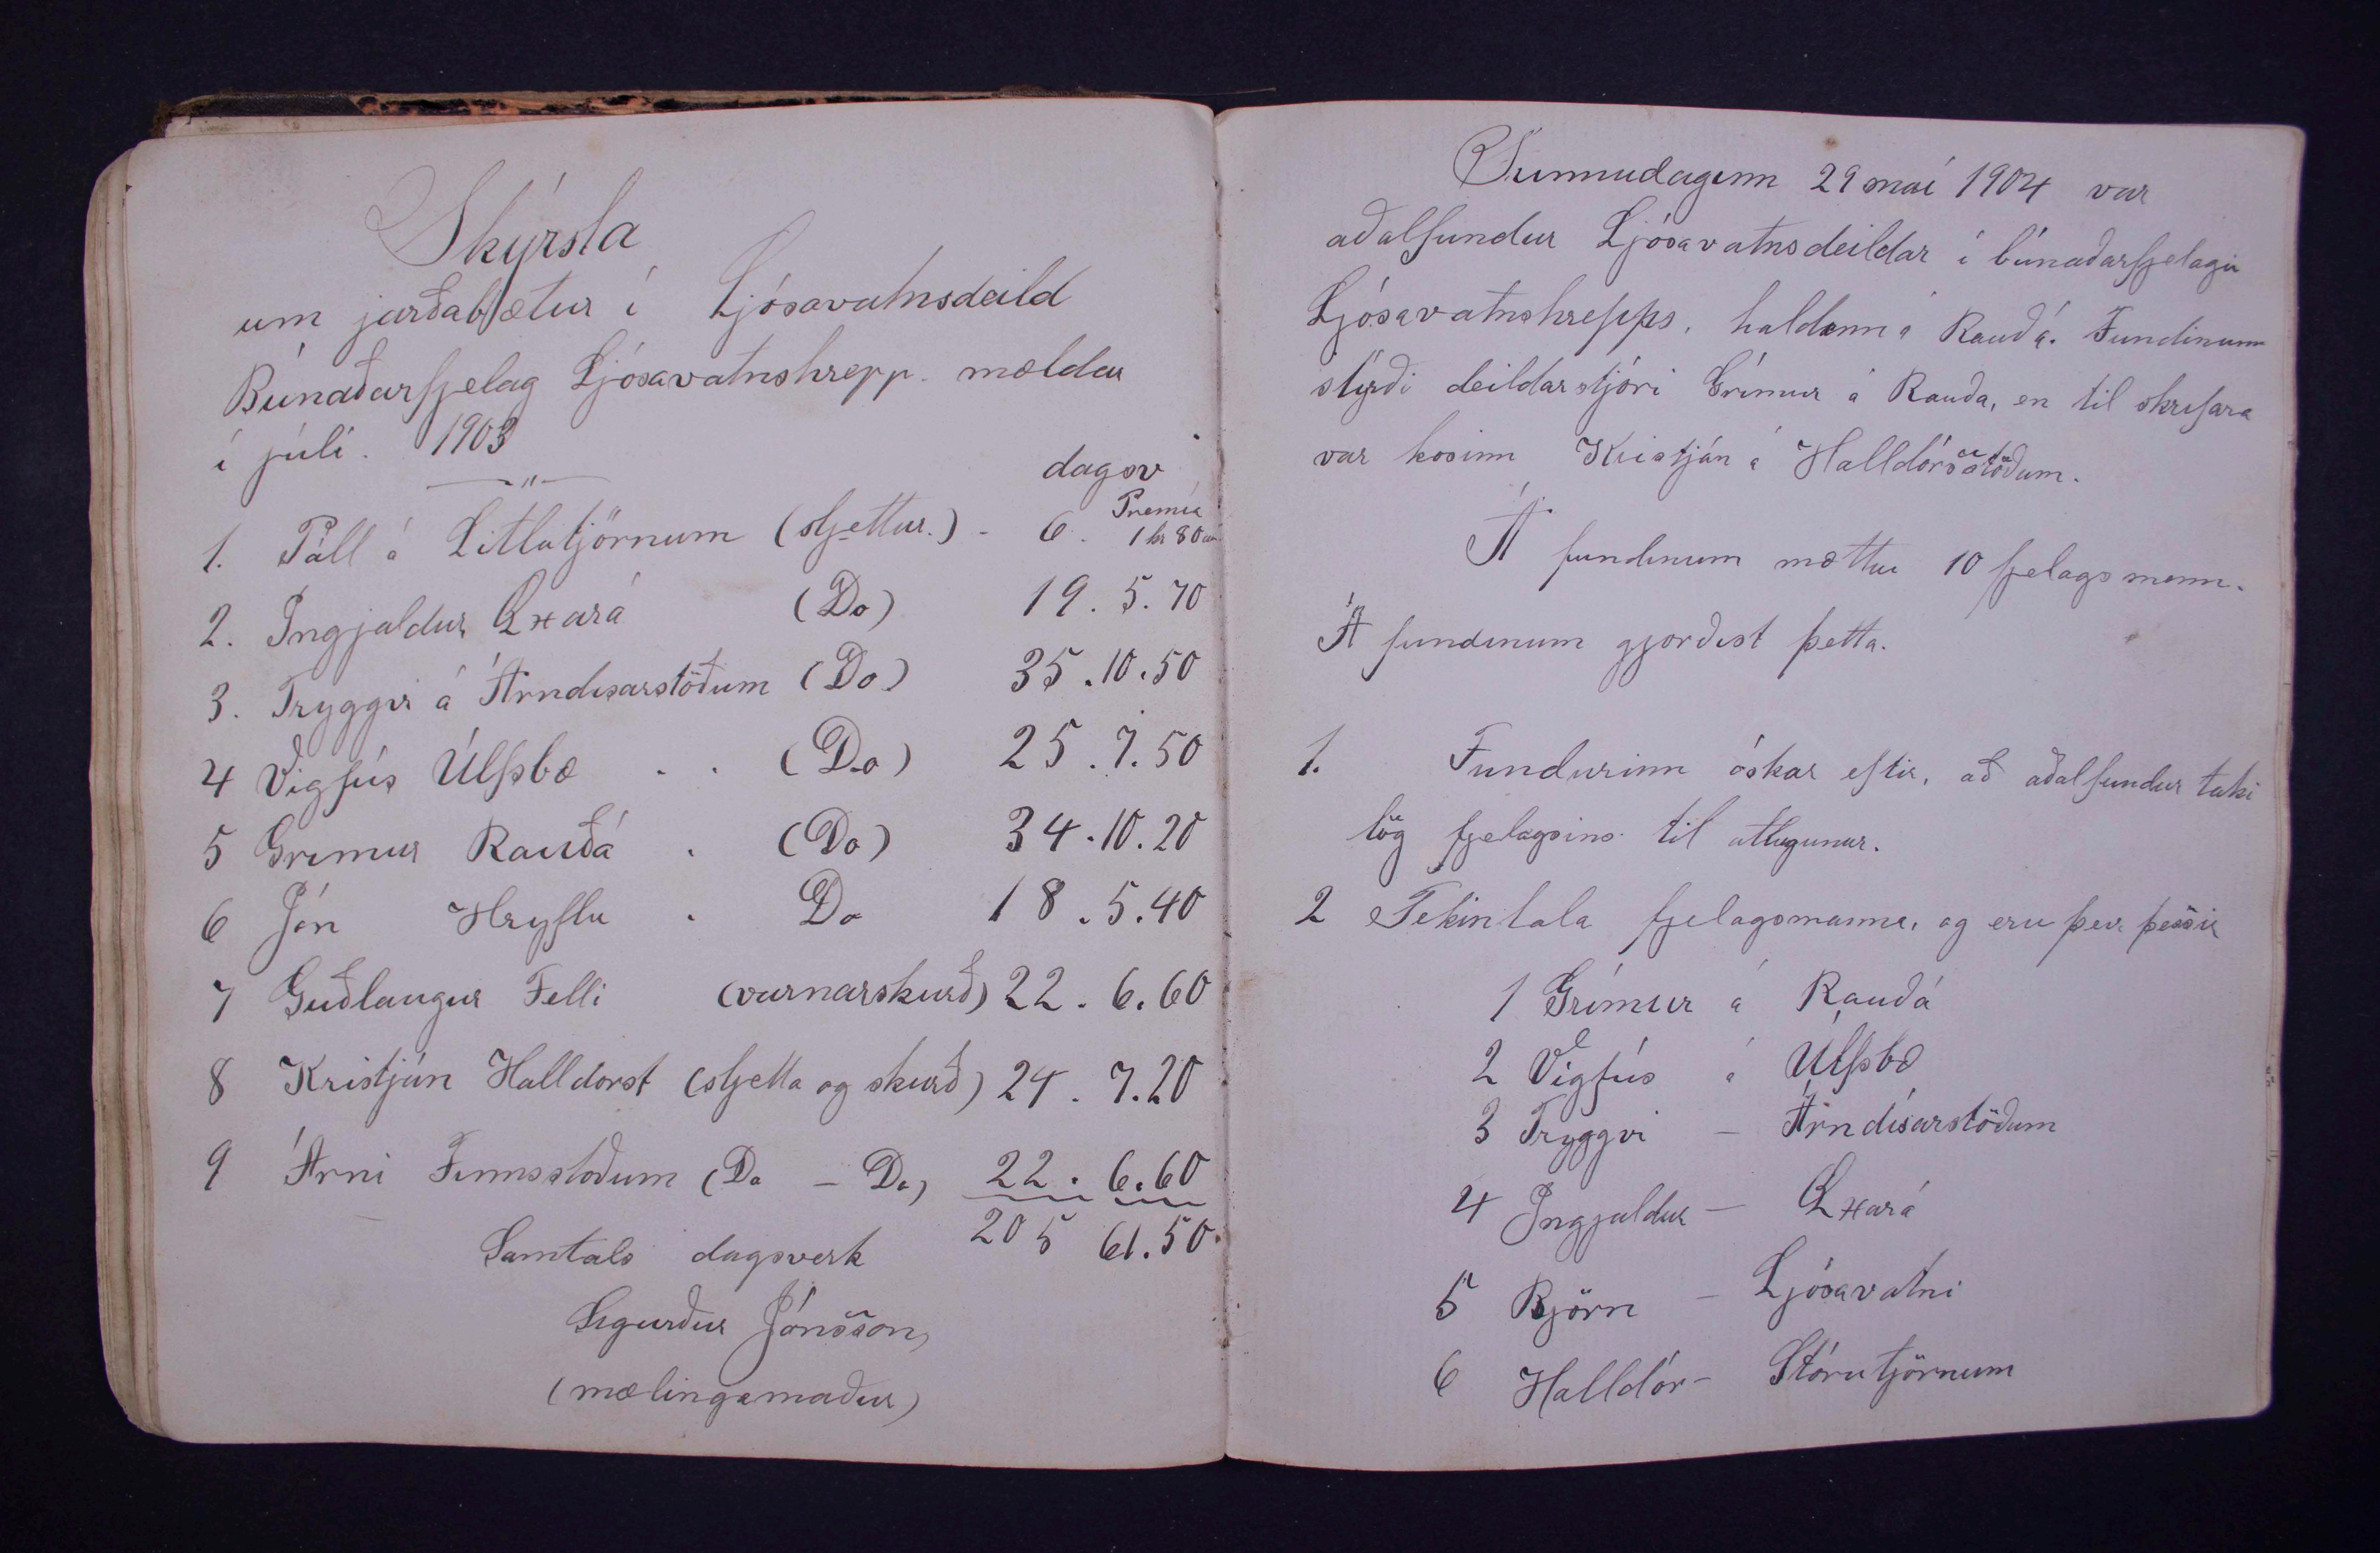 Skýrsla
um jarðabætur í Ljósavatnsdeild
Búnaðarfjelag Ljósavatnshrepp. mældar
í júli. 1903
dagsv
Premía
1. Páll á Litlutjörnum (sljettur.) - 6. 1 kr 80 au
2. Ingjaldur Öxará (Do) 19. 5. 70
3. Tryggvi á Árndisarstöðum (Do) 35. 10. 50
4 Vigfús Úlfsbæ . . (Do) 25. 7. 50
5 Grimur Rauðá . (Do) 34. 10. 20
6 Jón Hryflu . Do 18. 5. 40
7 Guðlaugur Felli (varnarskurð) 22. 6. 60
8 Kristján Halldorst (sljetta og skurð) 24. 7. 20
9 Árni Finnsstoðum (Do - Do) 22. 6. 60
Samtals dagsverk 205 61. 50.
Sigurður Jónsson,
(mælingamaður)
Sunnudaginn 29 maí 1904 var
aðalfundur Ljósavatnsdeildar í búnaðarfjelagi
Ljósavatnshrepps, haldinn á Rauðá. Fundinum
stýrði deildarstjóri Grímur á Rauða, en til skrifara
var kosinn Kristján á Halldórsstöðum.
Á fundinum mættu 10 fjelagsmenn.
Á fundinum gjorðist þetta.
1. Fundurinn óskar eftir, að aðalfundur taki
lög fjelagsins til athugunar.
2 Tekin tala fjelagsmanna, og eru þeir þessir
1 Grímur á Rauðá
2 Vigfús á Úlfsbæ
3 Tryggvi - Árndísarstöðum
4 Ingjaldur - Öxará
5 Björn - Ljósavatni
6 Halldór - Stórutjörnum